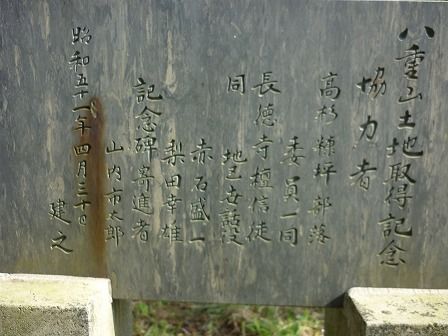 八重山土地取得記念
協力者
高杉棟坪部落
委員一同
長徳寺檀信徒
同 地区世話役
赤石盛一
梨田幸雄
記念碑寄進者
山内市太郎
昭和五十一年四月三十日
建之